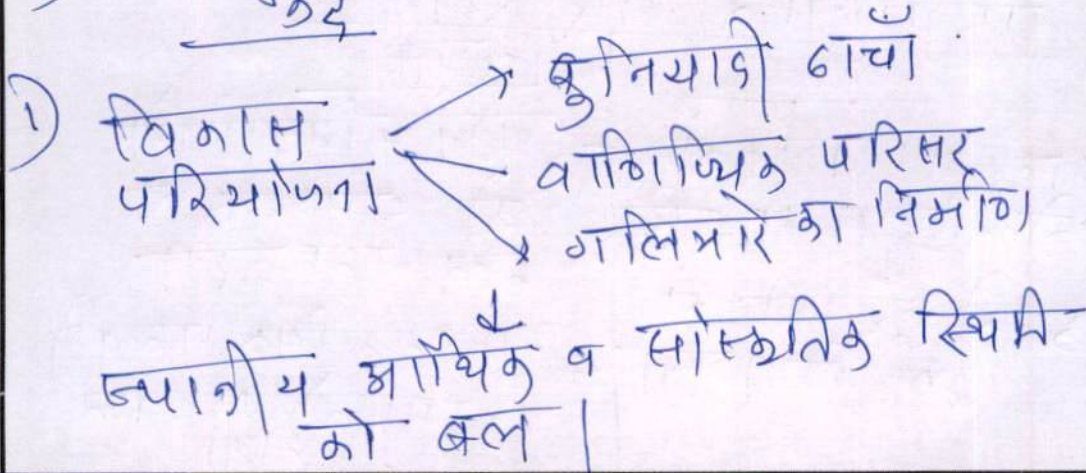 1) विकास परियोजना
बुनियादी ढाचाँ
वाणिज्यिक परिसर
गलियारे का निर्माण
स्थानीय आर्थिक व सांस्कृतिक स्थिति
को बल |